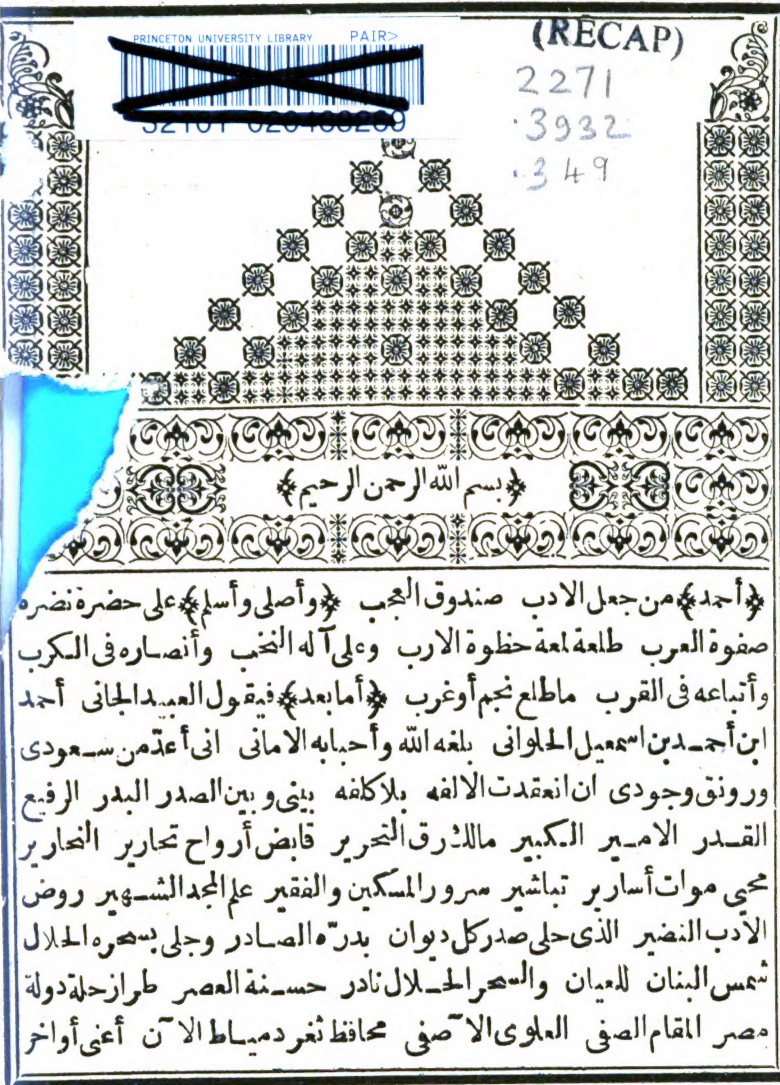 PRINCETON UNIVERSITY LIBRARY PAIR>
(RECAP)
2271
.3932
.349
﴿بسم الله الرحمن الرحيم﴾
﴿أحمد﴾ من جعل الادب صندوق العجب ﴿وأصلى وأسلم﴾ على حضرة نضره
صفوة العرب طلعة لمعة حظوة الارب وعلى آله النخب وأنصاره فى الكرب
وأتباعه فى القرب ماطلع نجم أوغرب ﴿أما بعد﴾ فيقول العبيد الجانى أحمد
ابن أحمد بن اسمعيل الحلوانى بلغه الله وأحبابه الامانى انى أعدّ من سعودى
ورونق وجودى ان انعقدت الالفه بلا كلفه بينى وبين الصدر البدر الرفيع
القدر الامير الكبير مالك رق التحرير قابض أرواح تحارير النحارير
محيى موات أسارير تباشير سرور المسكين والفقير علم المجد الشهير روض
الادب النضير الذى حلى صدر كل ديوان بدرّه الصادر وجلى بسحره الحلال
شمس البنان للعيان والسحر الحلال نادر حسنة العصر طراز حلة دولة
مصر المقام الصفى العلوى الآصفى محافظ ثغر دمياط الآن أعنى أواخر